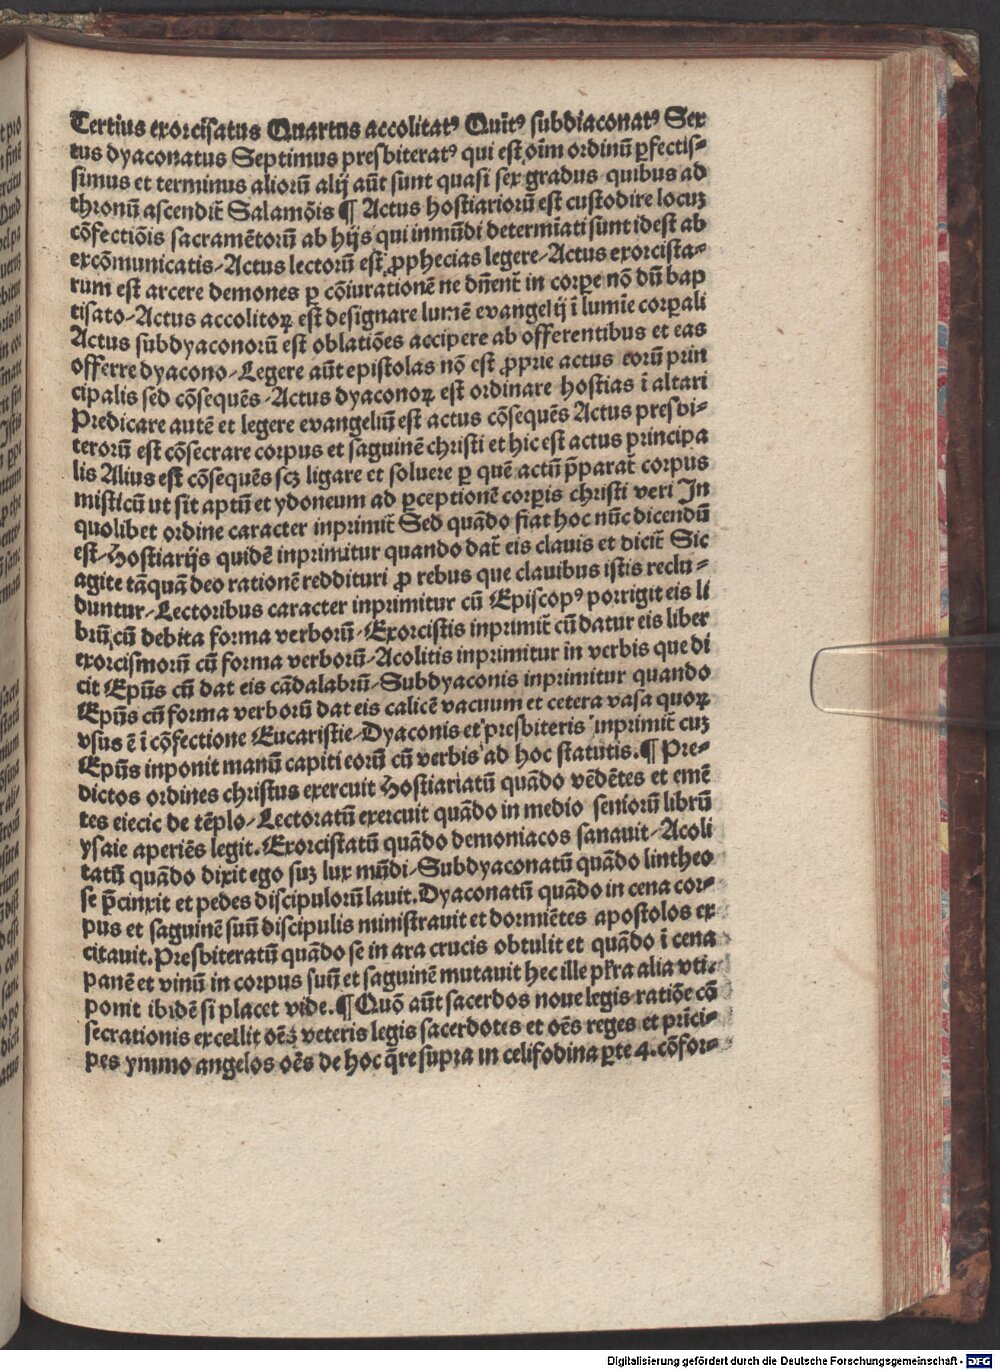 Tertius exorcisatus Quartus accolitatꝰ Quītꝰ subdiaconatꝰ Sex
tus dyaconatus Septimus presbiteratꝰ qui est oīm ordinū ꝑfectis⸗
simus et terminus aliorū alij aūt sunt quasi sex gradus quibus ad
thronū ascendit̄ Salamōis ¶ Actus hostiariorū est custodire locuꝫ
cōfectiōis sacramētorū ab hijs qui inmūdi determiati sunt idest ab
excōmunicatis⸗Actus lectorū est ꝓphecias legere⸗Actus exorcista⸗
rum est arcere demones ꝑ cōiurationē ne dn̄ent̄ in corꝑe nō dū bap
tisato⸗Actus accolitoꝝ est designare lumē evangelij ī lumīe corꝑali
Actus subdyaconorū est oblatiōes accipere ab offerentibus et eas
offerre dyacono⸗Legere aūt epistolas nō est ꝓprie actus eorū prin
cipalis sed cōsequēs⸗Actus dyaconoꝝ est ordinare hostias ī altari
Predicare autē et legere evangeliū est actus cōsequēs Actus presbi⸗
terorū est cōsecrare corpus et saguinē christi et hic est actus principa
lis Alius est cōsequēs scꝫ ligare et soluere ꝑ quē actū p̄parat̄ corpus
misticū ut sit aptū et ydoneum ad ꝑceptionē corꝑis christi veri In
quolibet ordine caracter inprimit̄ Sed quādo fiat hoc nūc dicendū
est⸗Hostiarijs quidē inprimitur quando dat̄ eis clauis et dicit̄ Sic
agite tāquā deo rationē reddituri ꝓ rebus que clauibus istis reclu⸗
duntur⸗Lectoribus caracter inprimitur cū Episcopꝰ porrigit eis li
brū cū debita forma verborū⸗Exorcistis inprimit̄ cū datur eis liber
exorcismorū cū forma verborū⸗Acolitis inprimitur in verbis que di
cit Ep̄us cū dat eis cādalabrū⸗Subdyaconis inprimitur quando
Ep̄us cū forma verborū dat eis calicē vacuum et cetera vasa quoꝝ
vsus ē ī cōfectione Eucaristie⸗Dyaconis et presbiteris inprimit̄ cuꝫ
Ep̄us inponit manū capiti eorū cū verbis ad hoc statutis.¶ Pre⸗
dictos ordines christus exercuit Hostiariatū quādo vēdētes et emē
tes eiecic de tēplo⸗Lectoratū exercuit quādo in medio seniorū librū
ysaie aperiēs legit.Exorcistatū quādo demoniacos sanauit⸗Acoli
tatū quādo dixit ego suꝫ lux mūdi⸗Subdyaconatū quādo lintheo
se p̄cinxit et pedes discipulorū lauit.Dyaconatū quādo in cena cor⸗
pus et saguinē suū discipulis ministrauit et dormiētes apostolos ex
citauit.Presbiteratū quādo se in ara crucis obtulit et quādo ī cena
panē et vinū in corpus suū et saguinē mutauit hec ille pl̄ra alia vti⸗
ponit ibidē si placet vide.¶Quō aūt sacerdos noue legis ratiōe cō
secrationis excellit oēꝫ veteris legis sacerdotes et oēs reges et prīci⸗
pes ymmo angelos oēs de hoc q̄re supra in celifodina ꝑte 4.cōfor⸗
Digitalisierung gefördert durch die Deutsche Forschungsgemeinschaft - DFG